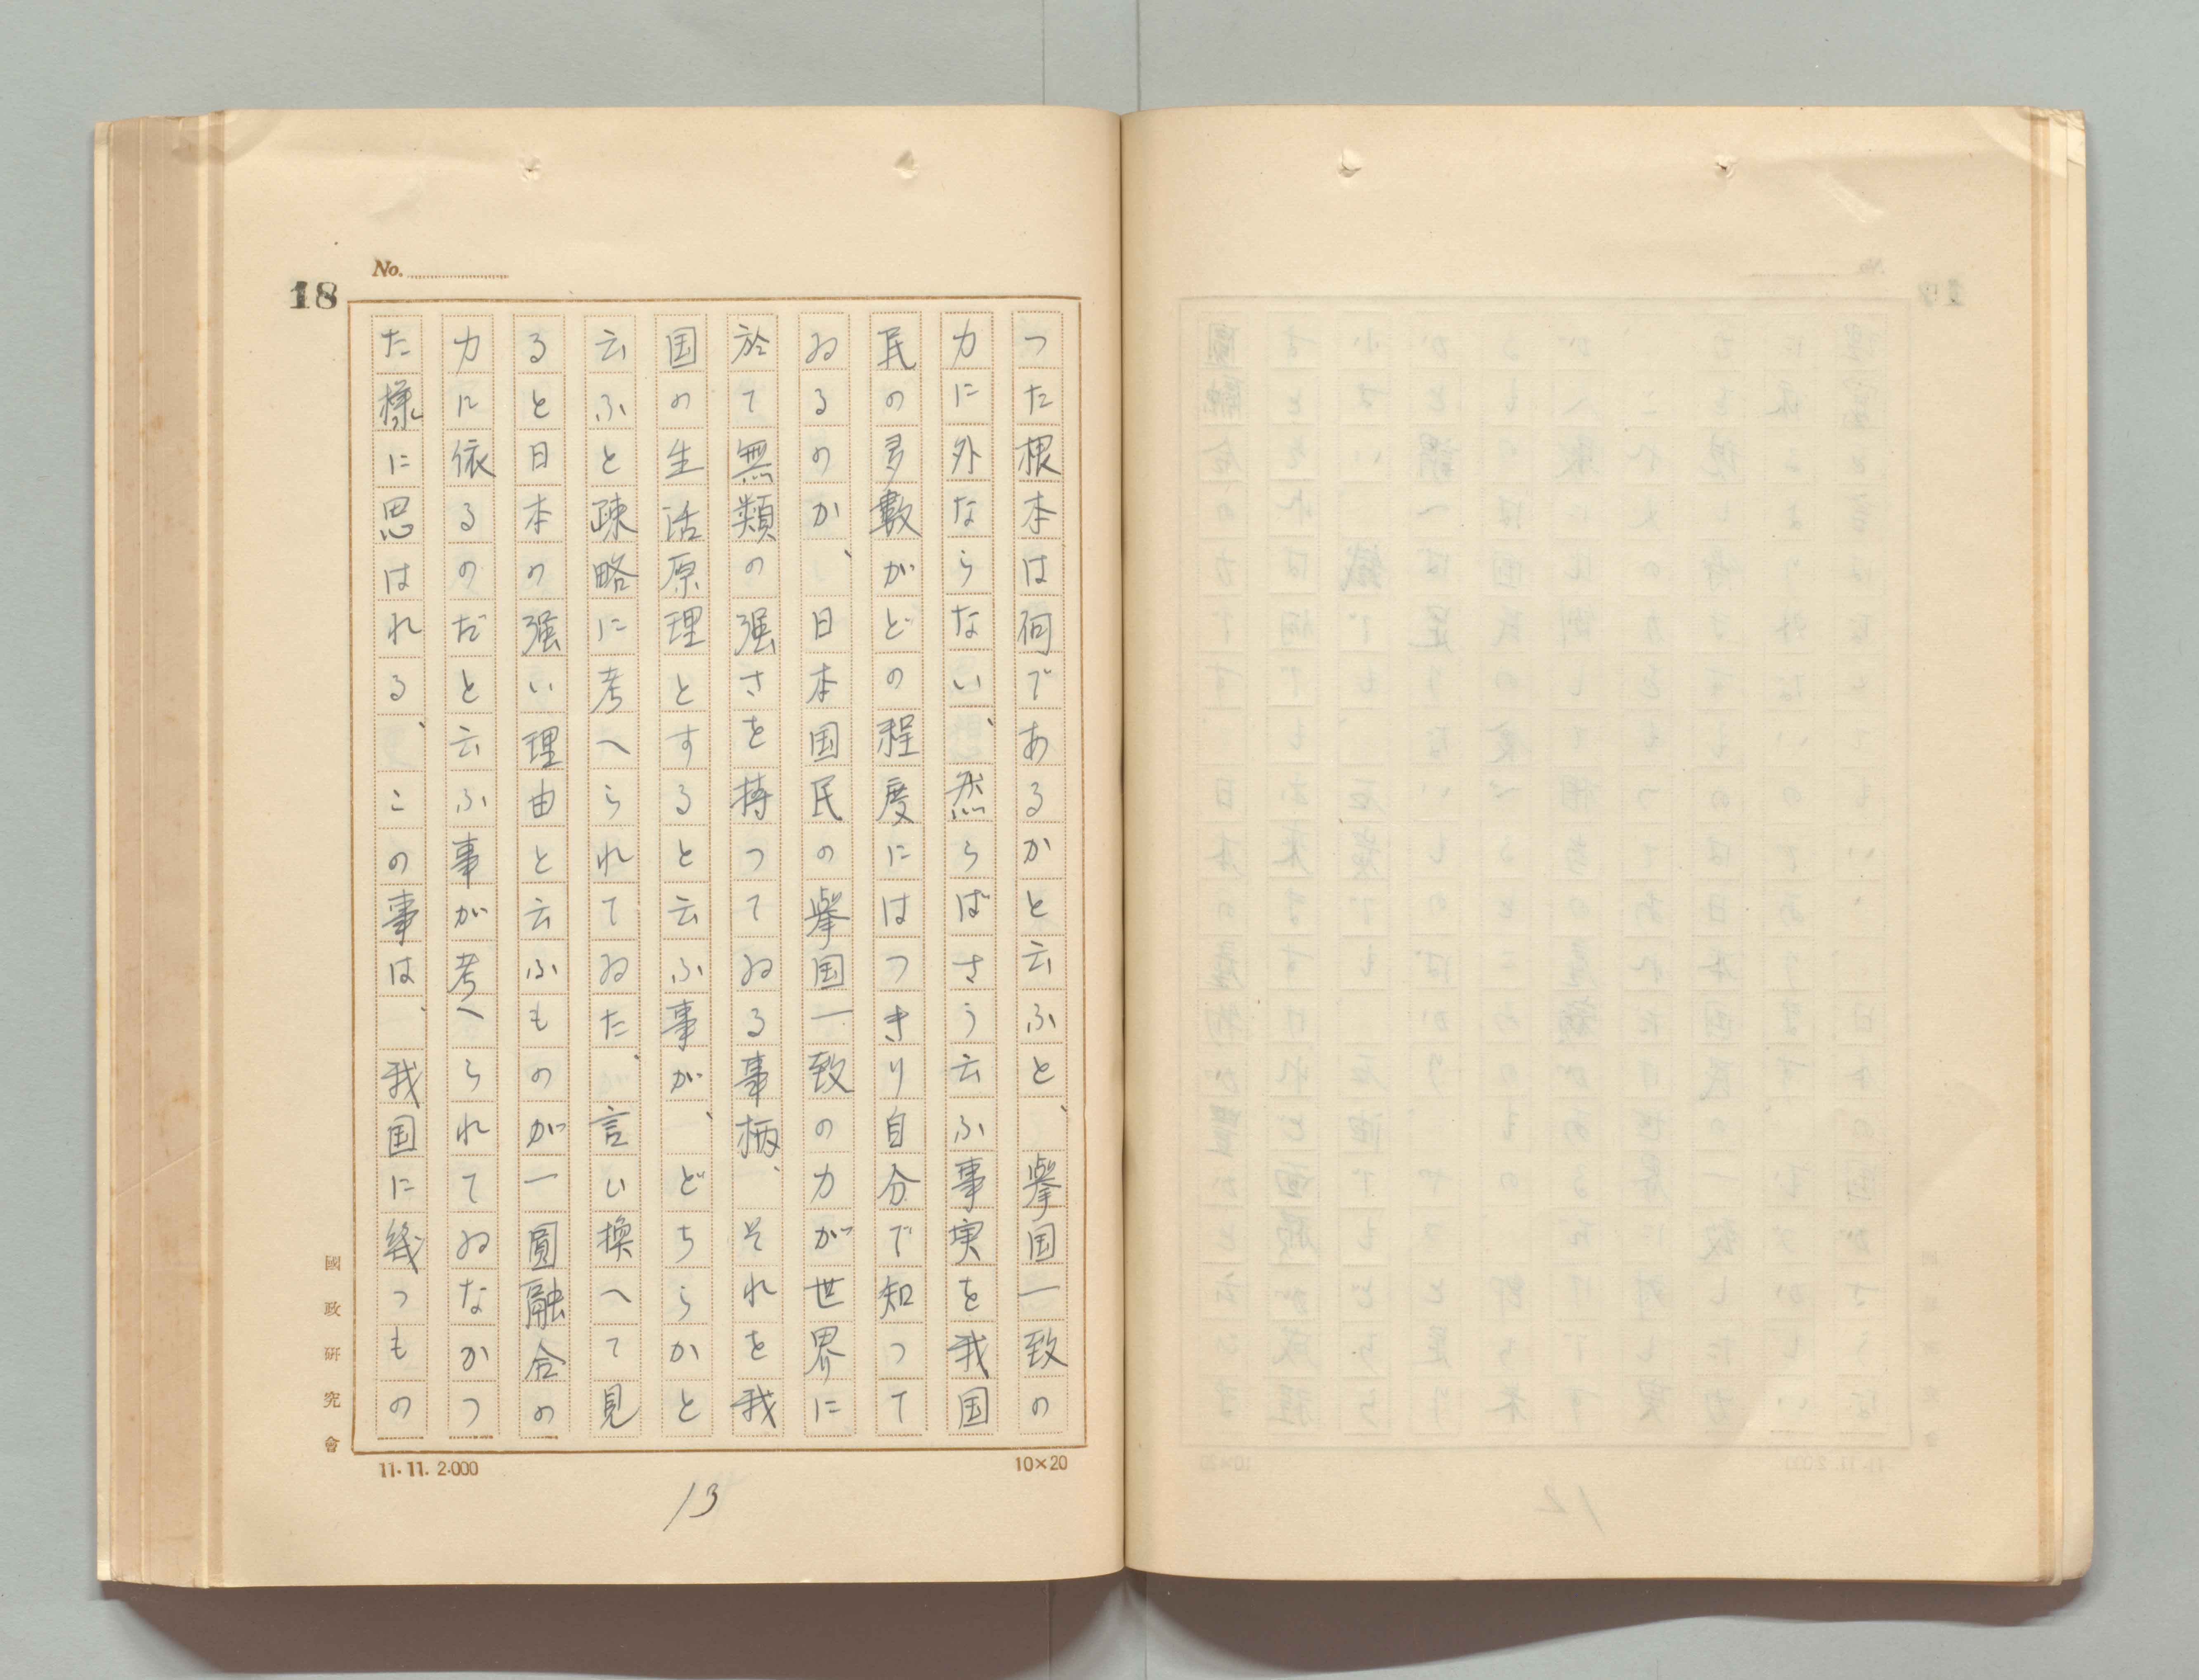 No.
18
つた根本は何であるかと云ふと、挙国一致の
力に外ならない、然らばさう云ふ事実を我国
民の多數がどの程度にはつきり自分で知つて
ゐるのか、日本国民の挙国一致の力が世界に
於て無類の强さを持つてゐる事柄、それを我
国の生活原理とすると云ふ事が、どちらかと
云ふと疎略に考へられてゐた、言い換へて見
ると日本の强い理由と云ふものが一圓融合の
力に依るのだと云ふ事が考へられてゐなかつ
た様に思はれる、この事は、我国に幾つもの
國政研究會
11.11.2.000
10×20
13